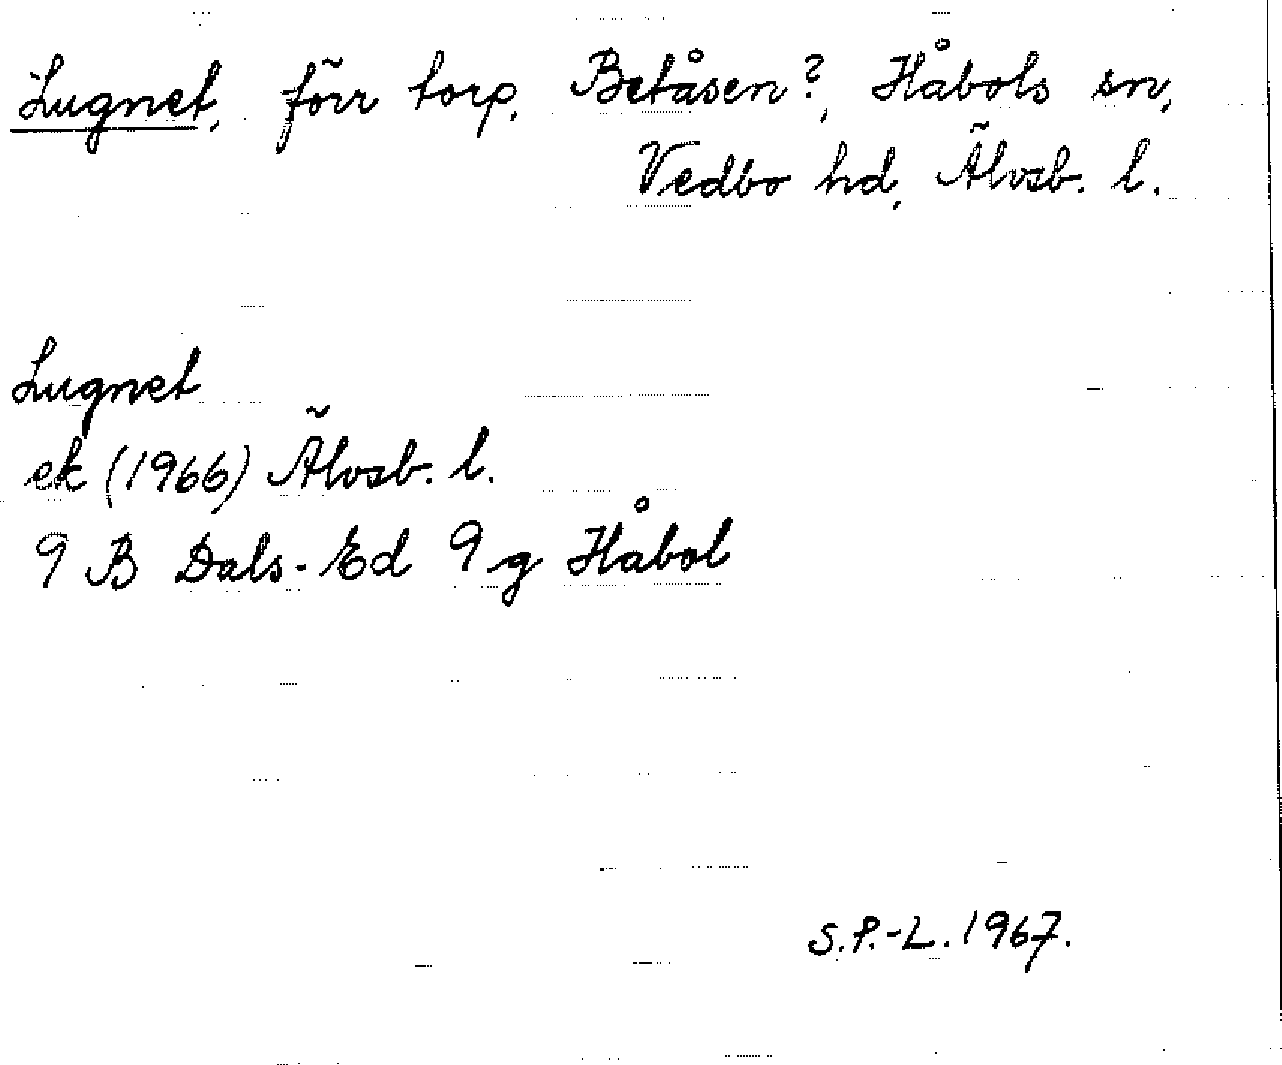 Lugnet, förr torp, Betåsen?, Håbols sn,
Vedbo hd, Älvsb. l.
Lugnet
ek (1966) Älvsb. l.
9 B Dals-Ed 9 g Håbol
S.P.-L. 1967.